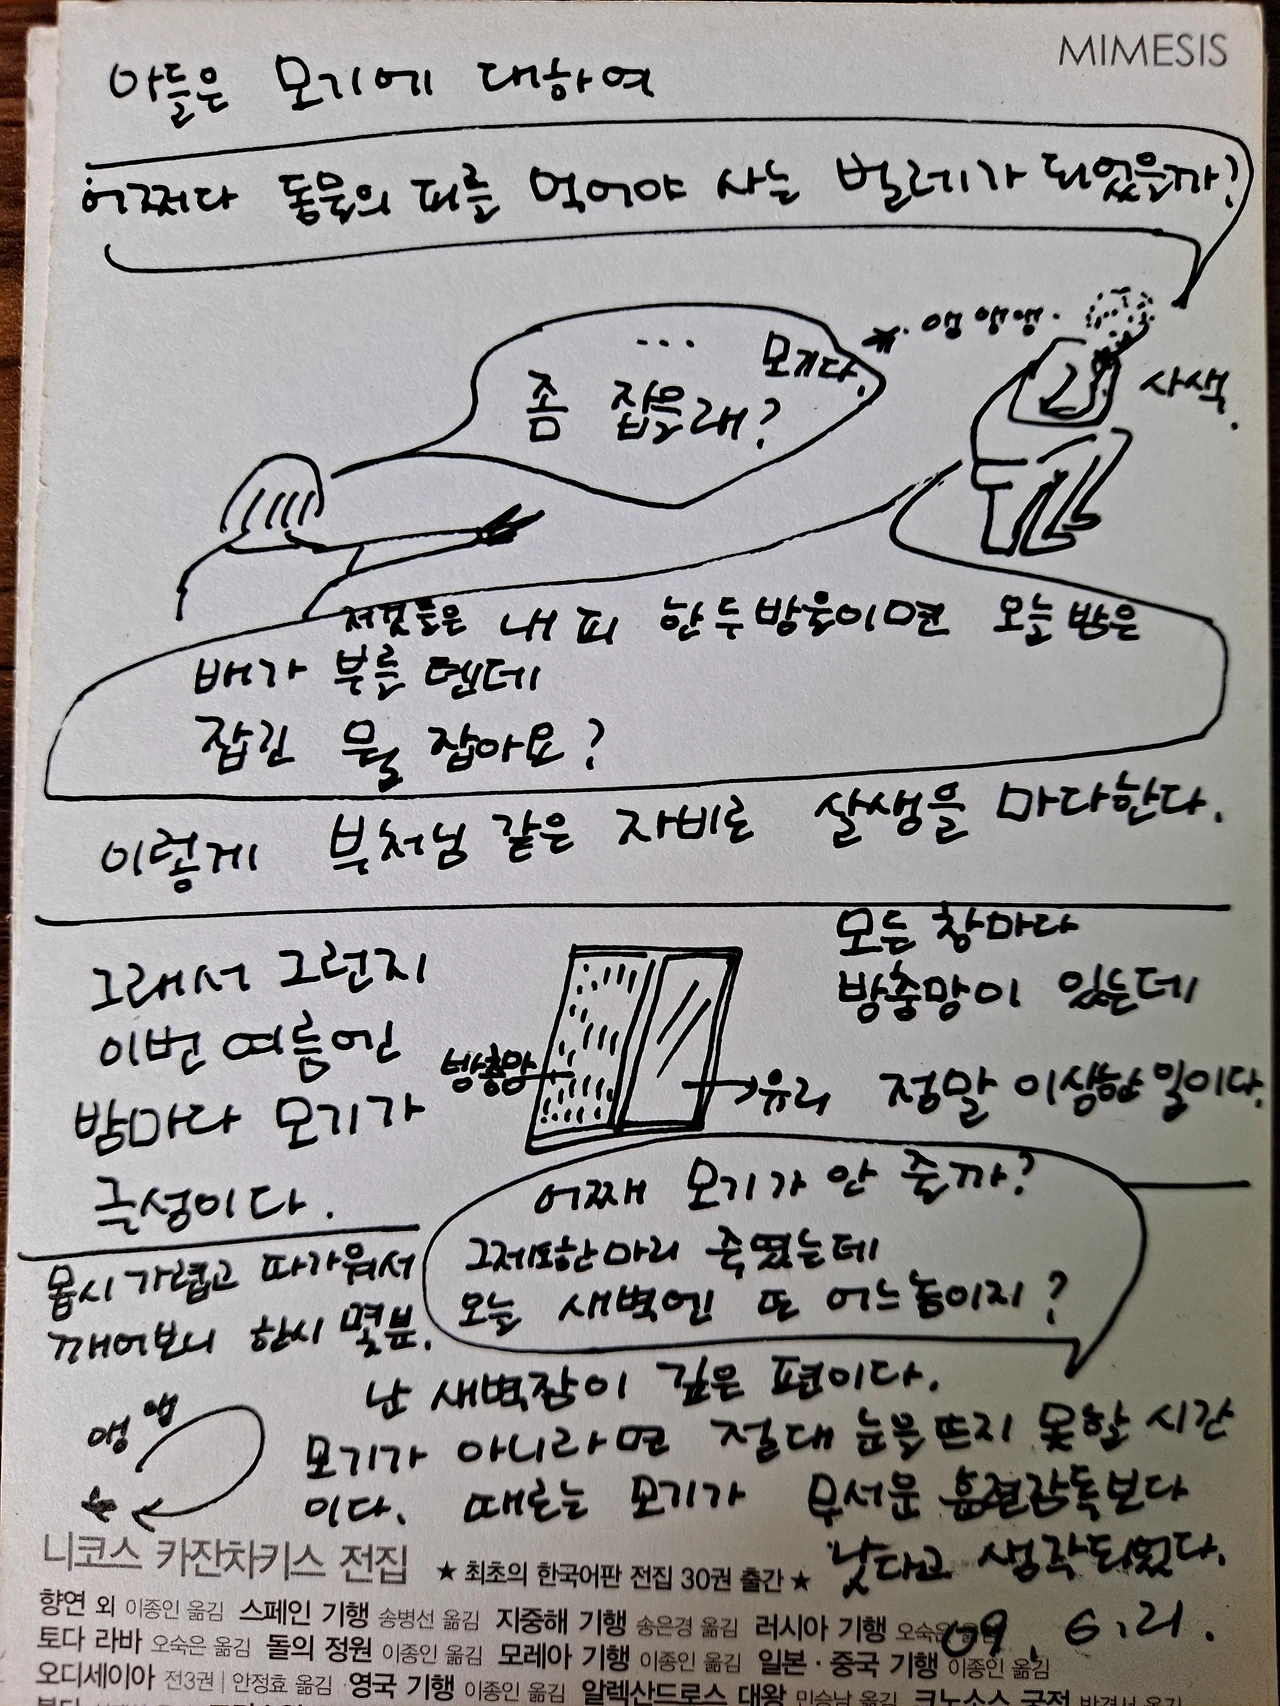 MIMESIS
아들은 모기에 대하여
어쩌다 동물의 피를 먹어야 사는 벌레가 되었을까?
앵 앵앵.
사색.
... 모기다.
좀 잡을래?
저것들은 내 피 한두방울이면 오늘밤은
배가 부를 텐데
잡긴 뭘 잡아요?
이렇게 부처님 같은 자비로 살생을 마다한다.
그래서 그런지
이번 여름엔
밤마다 모기가
극성이다.
방충망
유리
모든 창마다
방충망이 있는데
정말 이상한 일이다.
어째 모기가 안 줄까?
그제도한마리 죽였는데
오늘 새벽엔 또 어느놈이지?
몹시 가렵고 따가워서
깨어보니 한시 몇분.
앵 앵
난 새벽잠이 깊은 편이다.
모기가 아니라면 절대 눈을뜨지 못할 시간
이다. 때로는 모기가 무서운 훈련감독보다
낫다고 생각되었다.
09. 6. 21.
니코스 카잔차키스 전집 ★ 최초의 한국어판 전집 30권 출간 ★
향연 외 이종인 옮김 스페인 기행 송병선 옮김 지중해 기행 송은경 옮김 러시아 기행 오숙은 옮김
토다 라바 오숙은 옮김 돌의 정원 이종인 옮김 모레아 기행 이종인 옮김 일본·중국 기행 이종인 옮김
오디세이아 전3권 | 안정효 옮김 영국 기행 이종인 옮김 알렉산드로스 대왕 민승남 옮김 크노소스 궁전 박경서 옮김